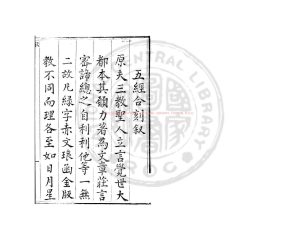 五經合刻叙
原夫三教聖人立言覺世大
都本其願力著為文章莊言
審諦總之自利利他等一無
二故凡綠字赤文琅函金版
教不同而理各至如日月星
CENTRAL LIBRARY